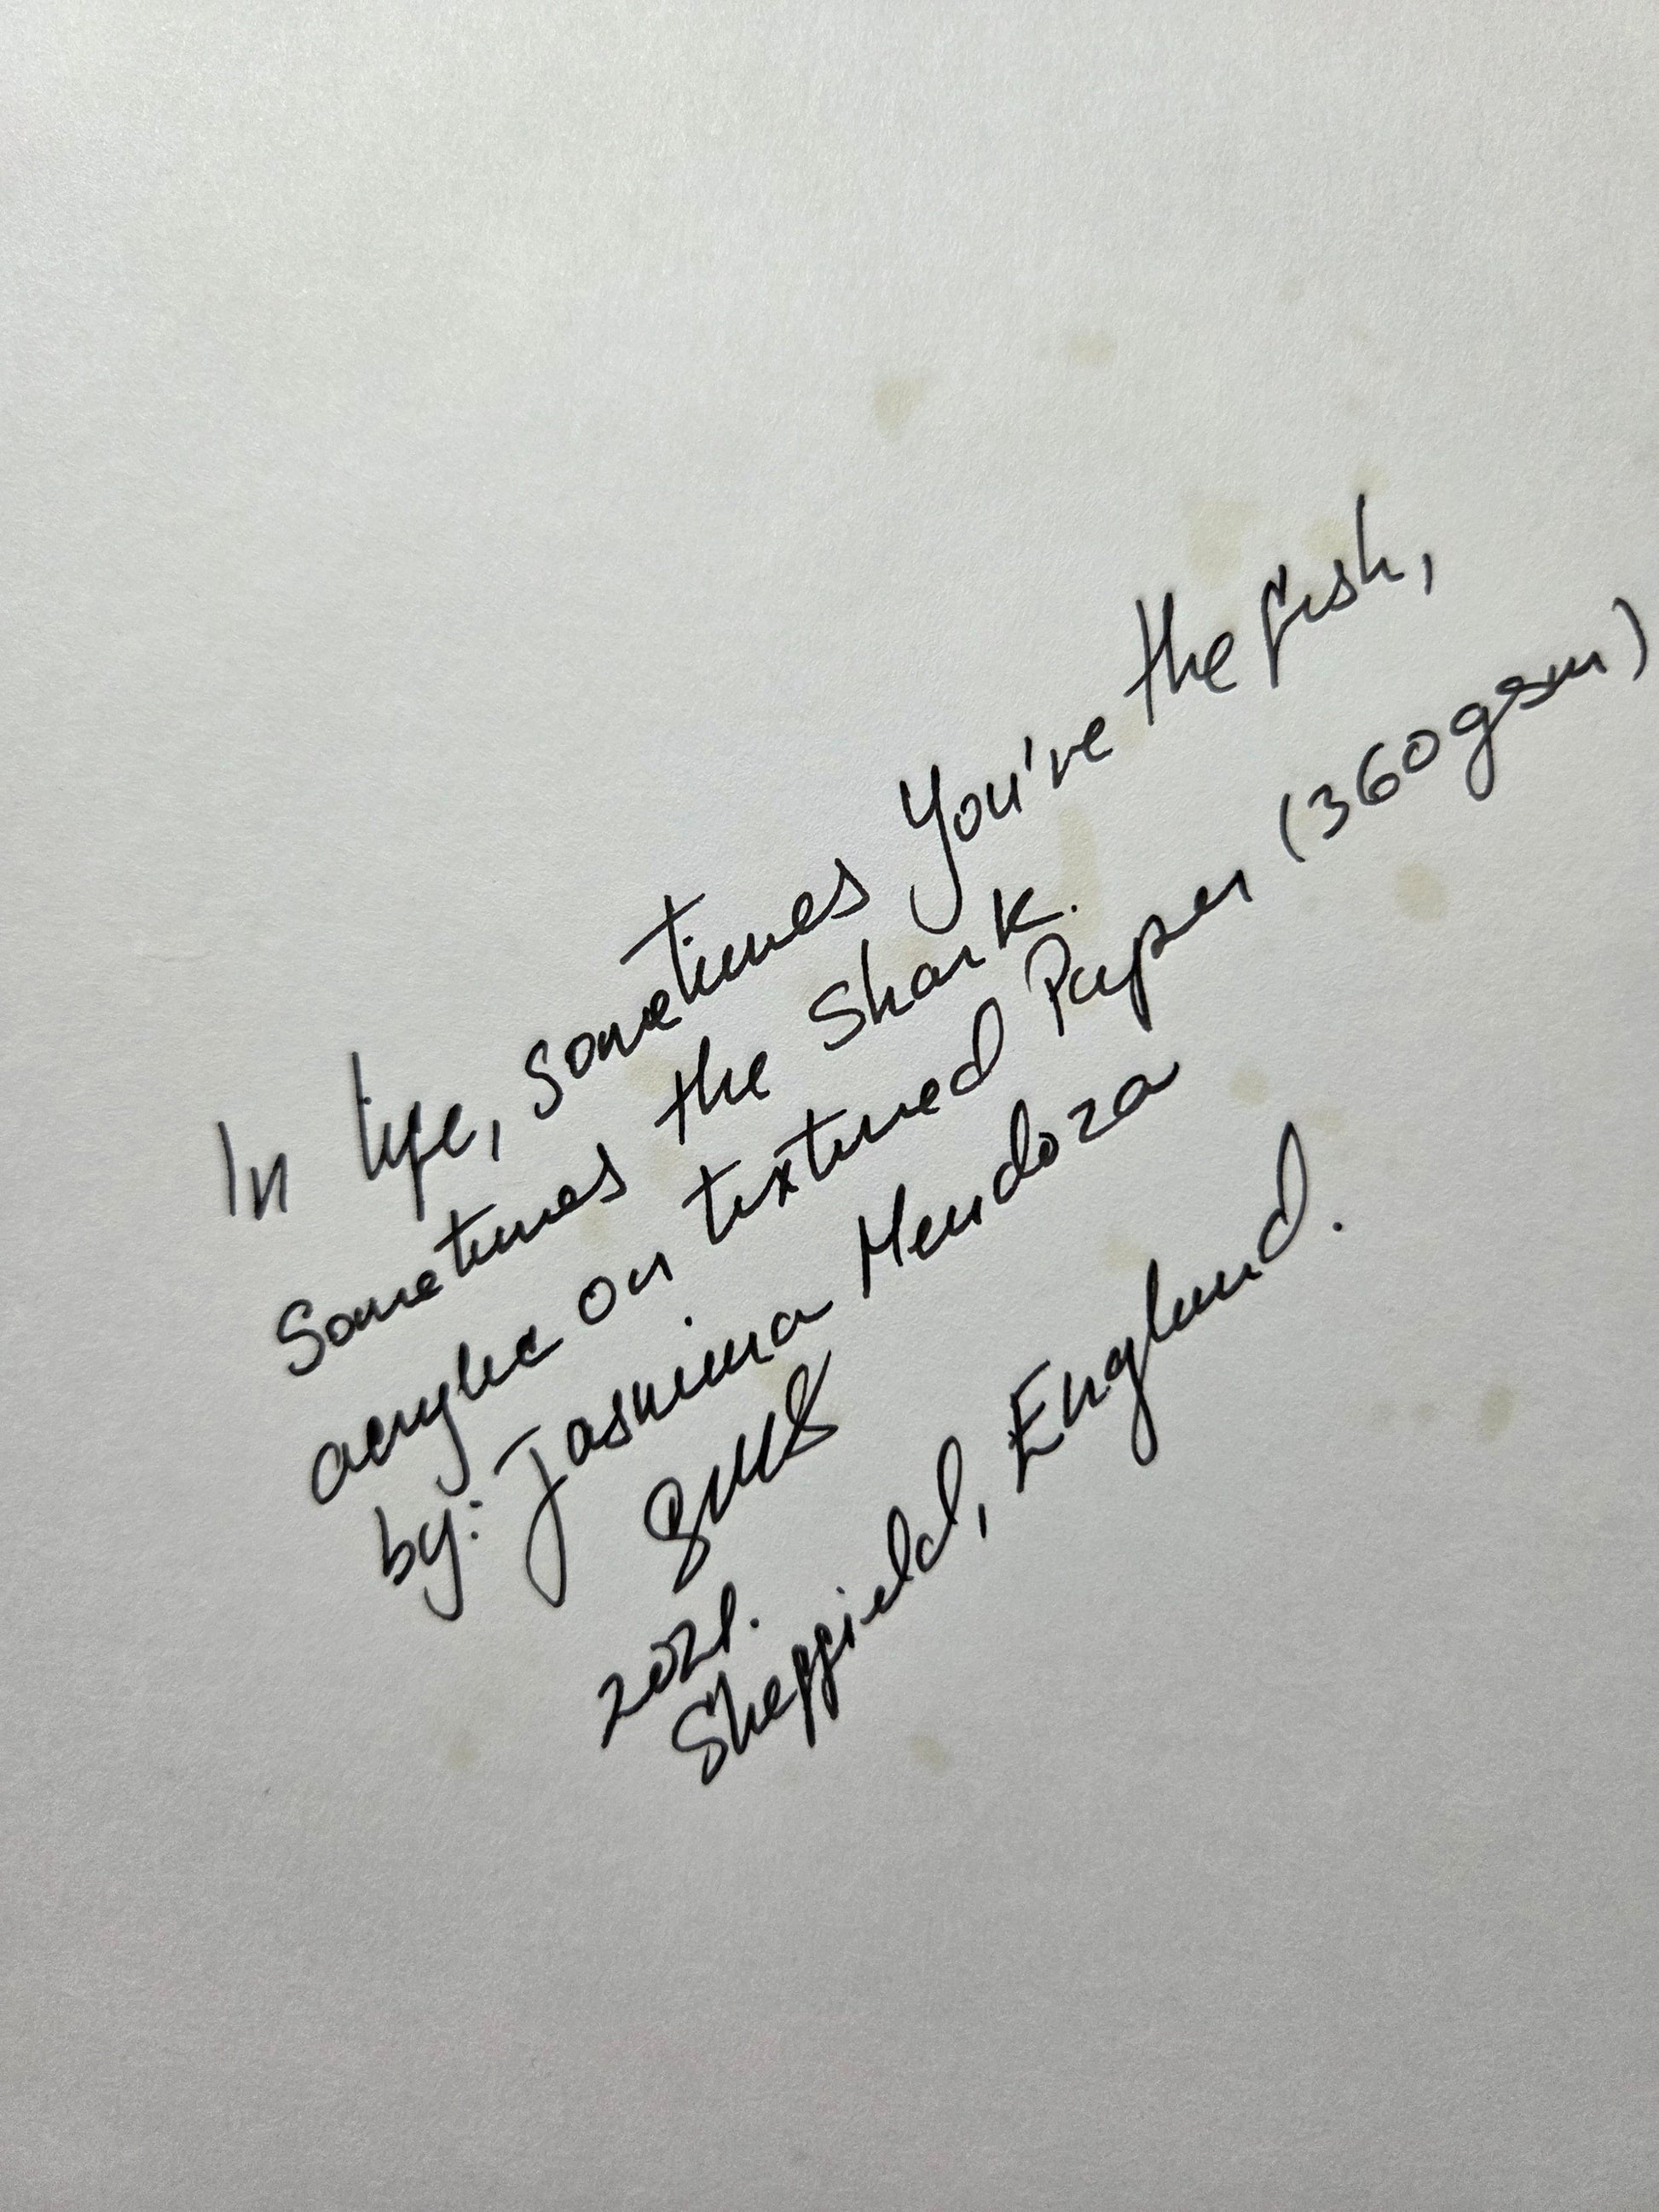 In life, sometimes you've the fish,
Sometimes the Shark.
acrylic on textured Paper (360gsm)
by: Jasmina Mendoza
2021.
Sheffield, England.